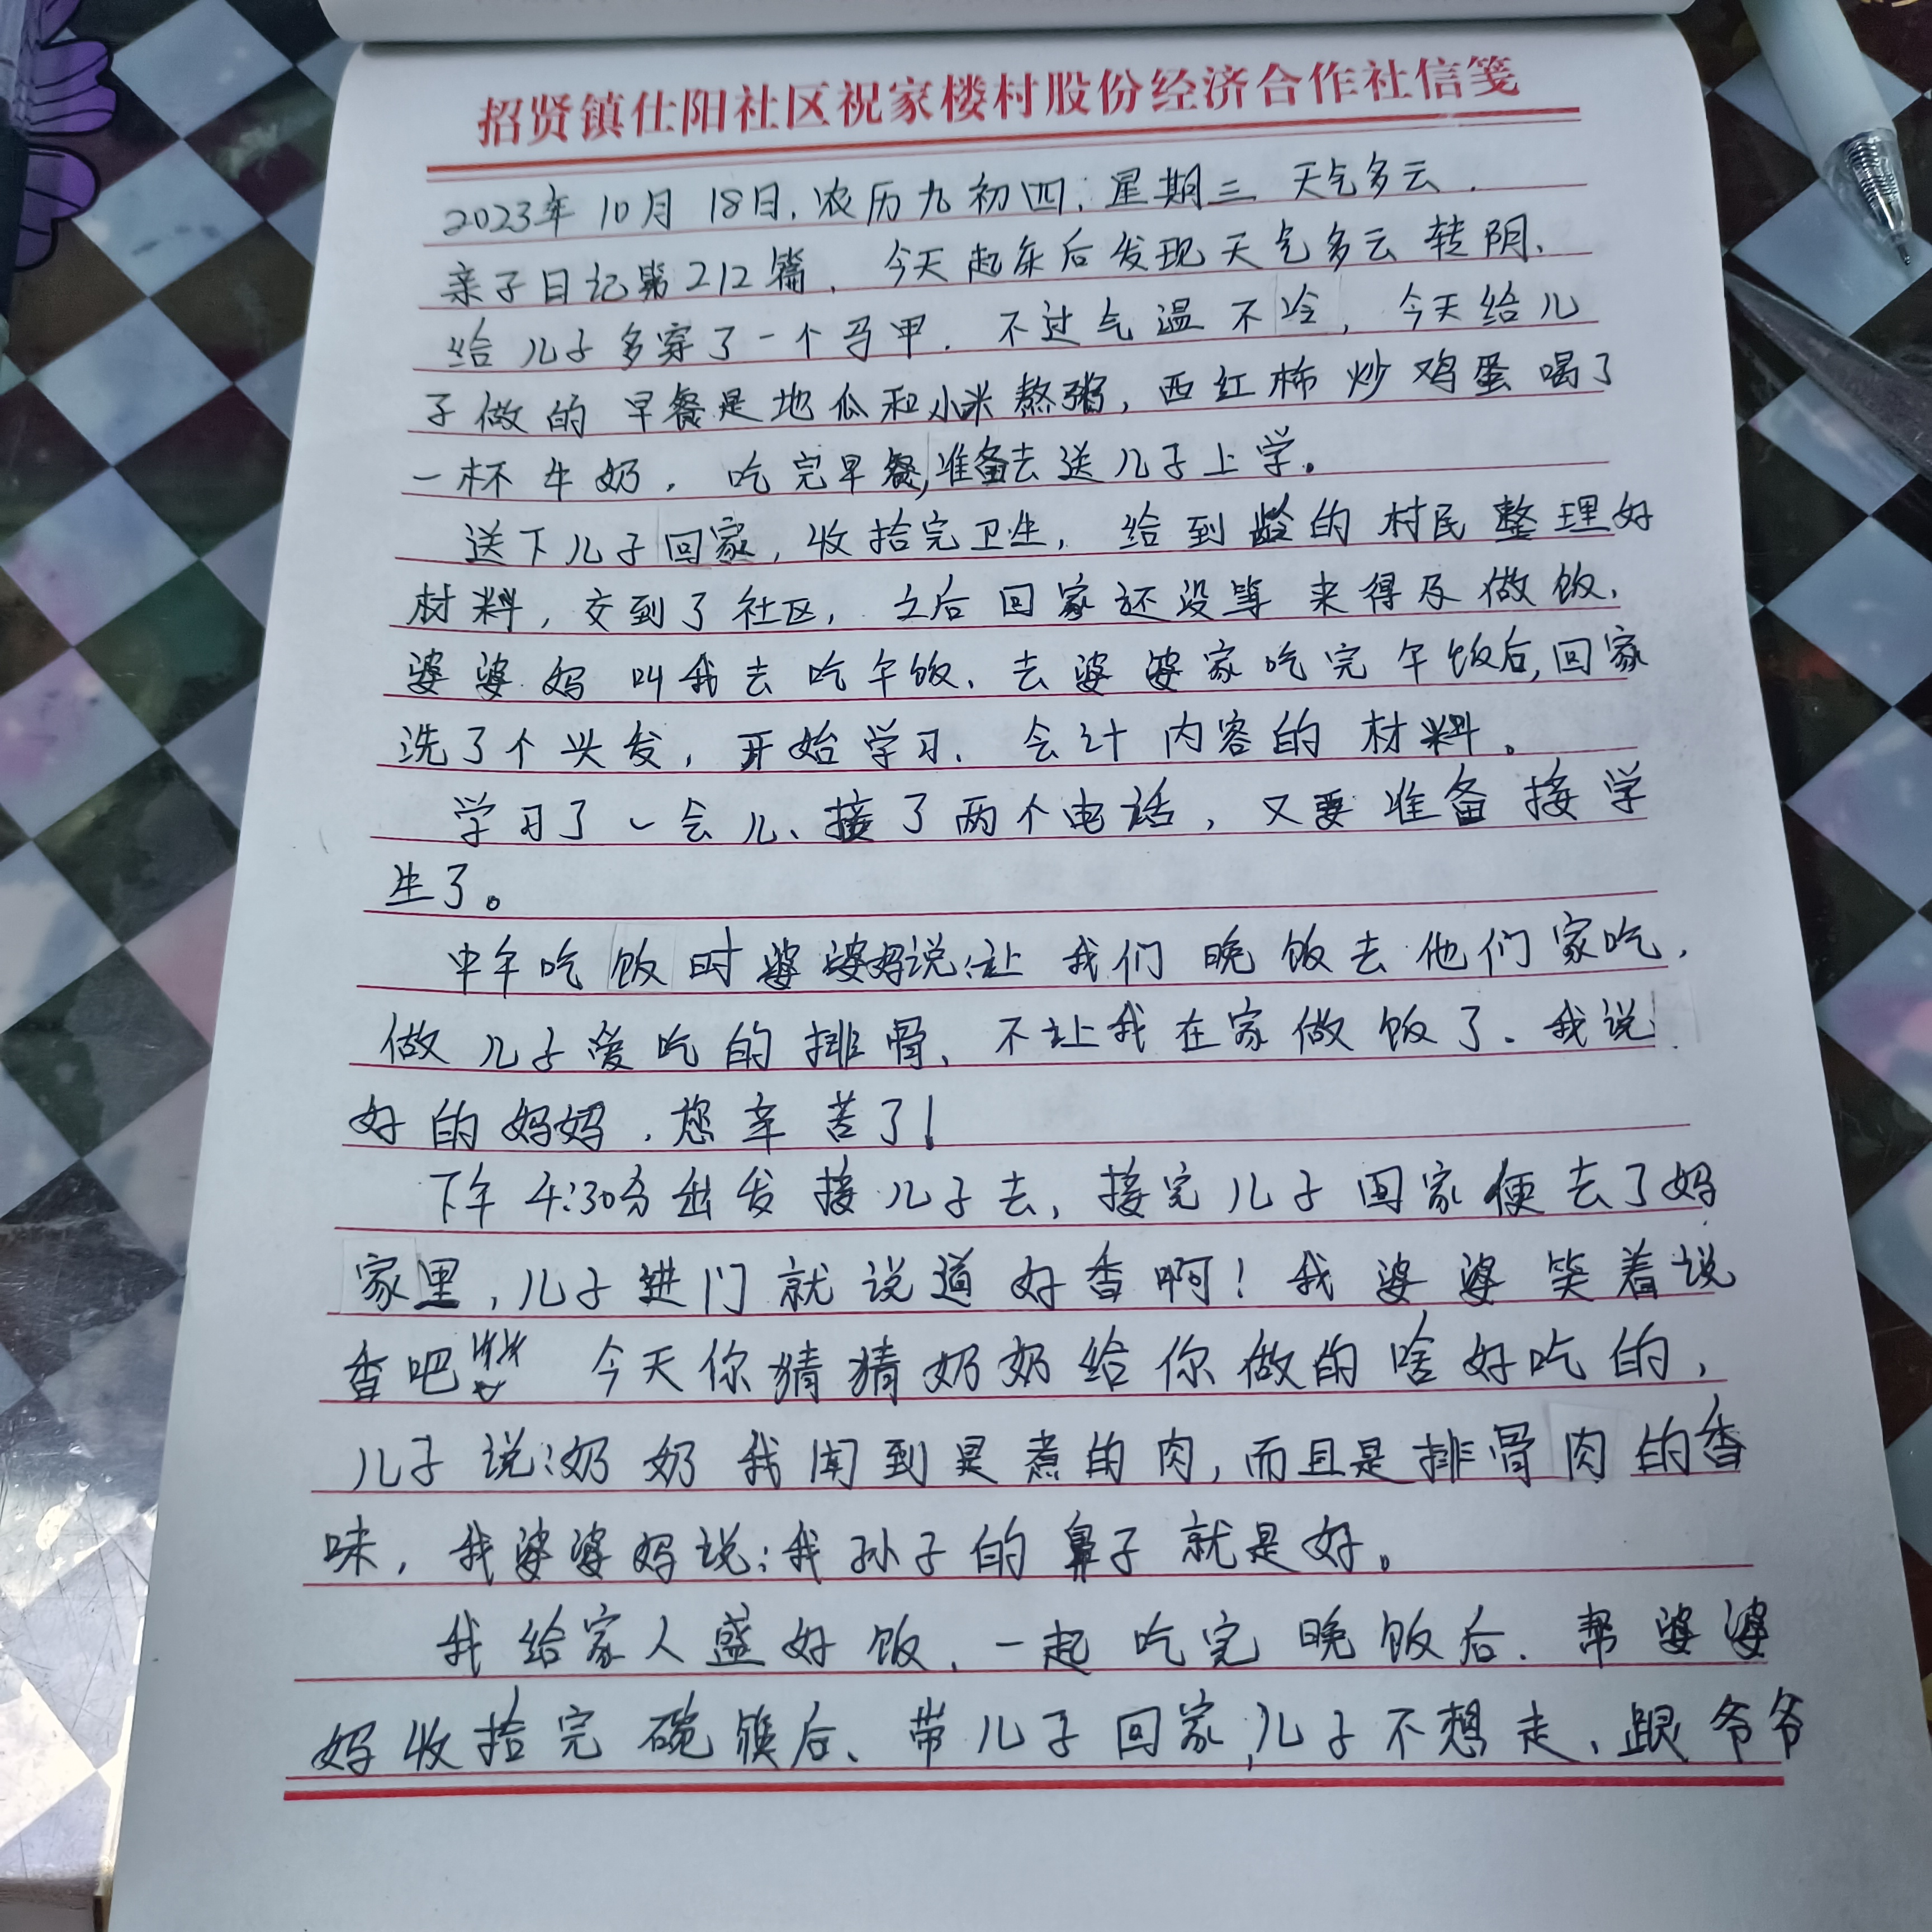 招贤镇仕阳社区祝家楼村股份经济合作社信笺
2023年10月18日，农历九初四，星期三 天气多云．
亲子日记第212篇．今天起床后发现天气多云转阴．
给儿子多穿了一个马甲．不过气温不冷，今天给儿
子做的早餐是地瓜和小米熬粥，西红柿炒鸡蛋喝了
一杯牛奶．吃完早餐，准备去送儿子上学。
送下儿子回家，收拾完卫生，给到龄的村民整理好
材料，交到了社区，之后回家还没等来得及做饭，
婆婆妈叫我去吃午饭．去婆婆家吃完午饭后，回家
洗了个头发，开始学习．会计内容的材料。
学习了一会儿、接了两个电话，又要准备接学
生了。
中午吃饭时婆婆妈说：让我们晚饭去他们家吃．
做儿子爱吃的排骨、不让我在家做饭了．我说
好的妈妈，您辛苦了！
下午4:30分出发接儿子去，接完儿子回家便去了妈
家里，儿子进门就说道好香啊！我婆婆笑着说
香吧 今天你猜猜奶奶给你做的啥好吃的，
儿子说：奶奶我闻到是煮的肉，而且是排骨肉的香
味，我婆婆妈说：我孙子的鼻子就是好。
我给家人盛好饭．一起吃完晚饭后．帮婆婆
妈收拾完碗筷后、带儿子回家，儿子不想走、跟爷爷